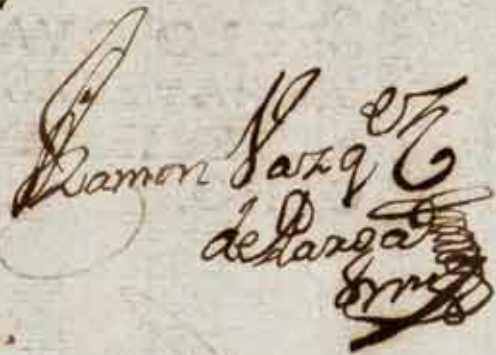 Ramon Vazq^ez
de Parga